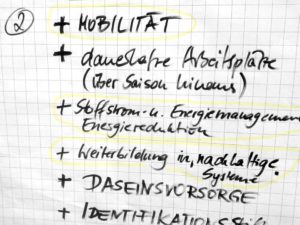 ②
+ MOBILITÄT
+ dauerhafte Arbeitsplätze
(über Saison hinaus)
+ Stoffstrom- u. Energiemanagemen
Energiereduktion
+ Weiterbildung in „nachhaltige
Systeme
+ DASEINSVORSORGE
+ IDENTIFIKATIONS